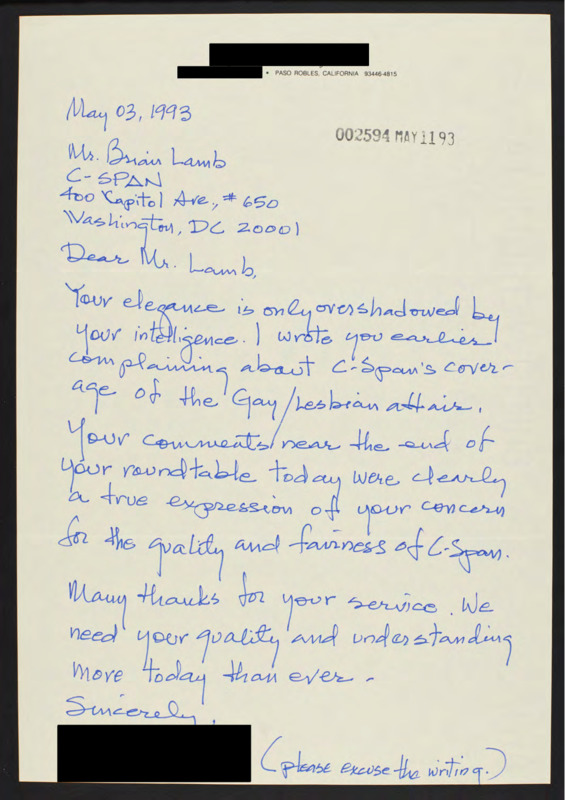 • PASO ROBLES, CALIFORNIA 93446-4815
May 03, 1993
002594 MAY 11 93
Mr. Brian Lamb
C-SPAN
400 Capitol Ave., # 650
Washington, DC 20001
Dear Mr. Lamb,
Your elegance is only overshadowed by
your intelligence. I wrote you earlier
complaining about C-Span's cover-
age of the Gay/Lesbian affair.
Your comments near the end of
your roundtable today were clearly
a true expression of your concern
for the quality and fairness of C-Span.
Many thanks for your service. We
need your quality and understanding
more today than ever -
Sincerely,
(please excuse the writing.)